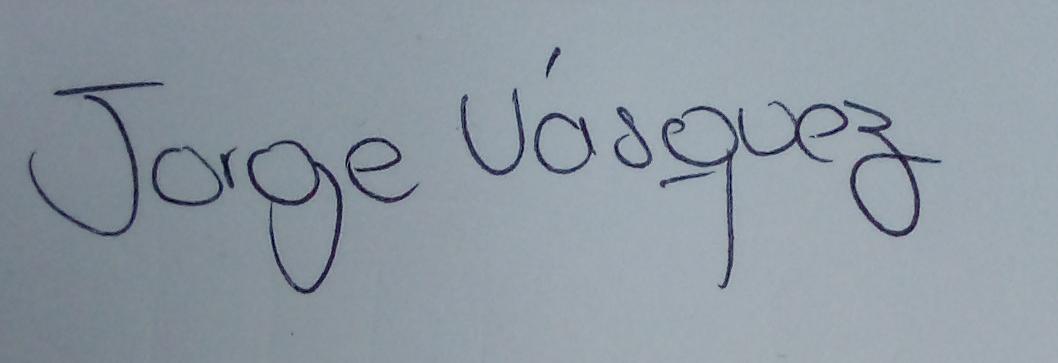 Jorge Vásquez